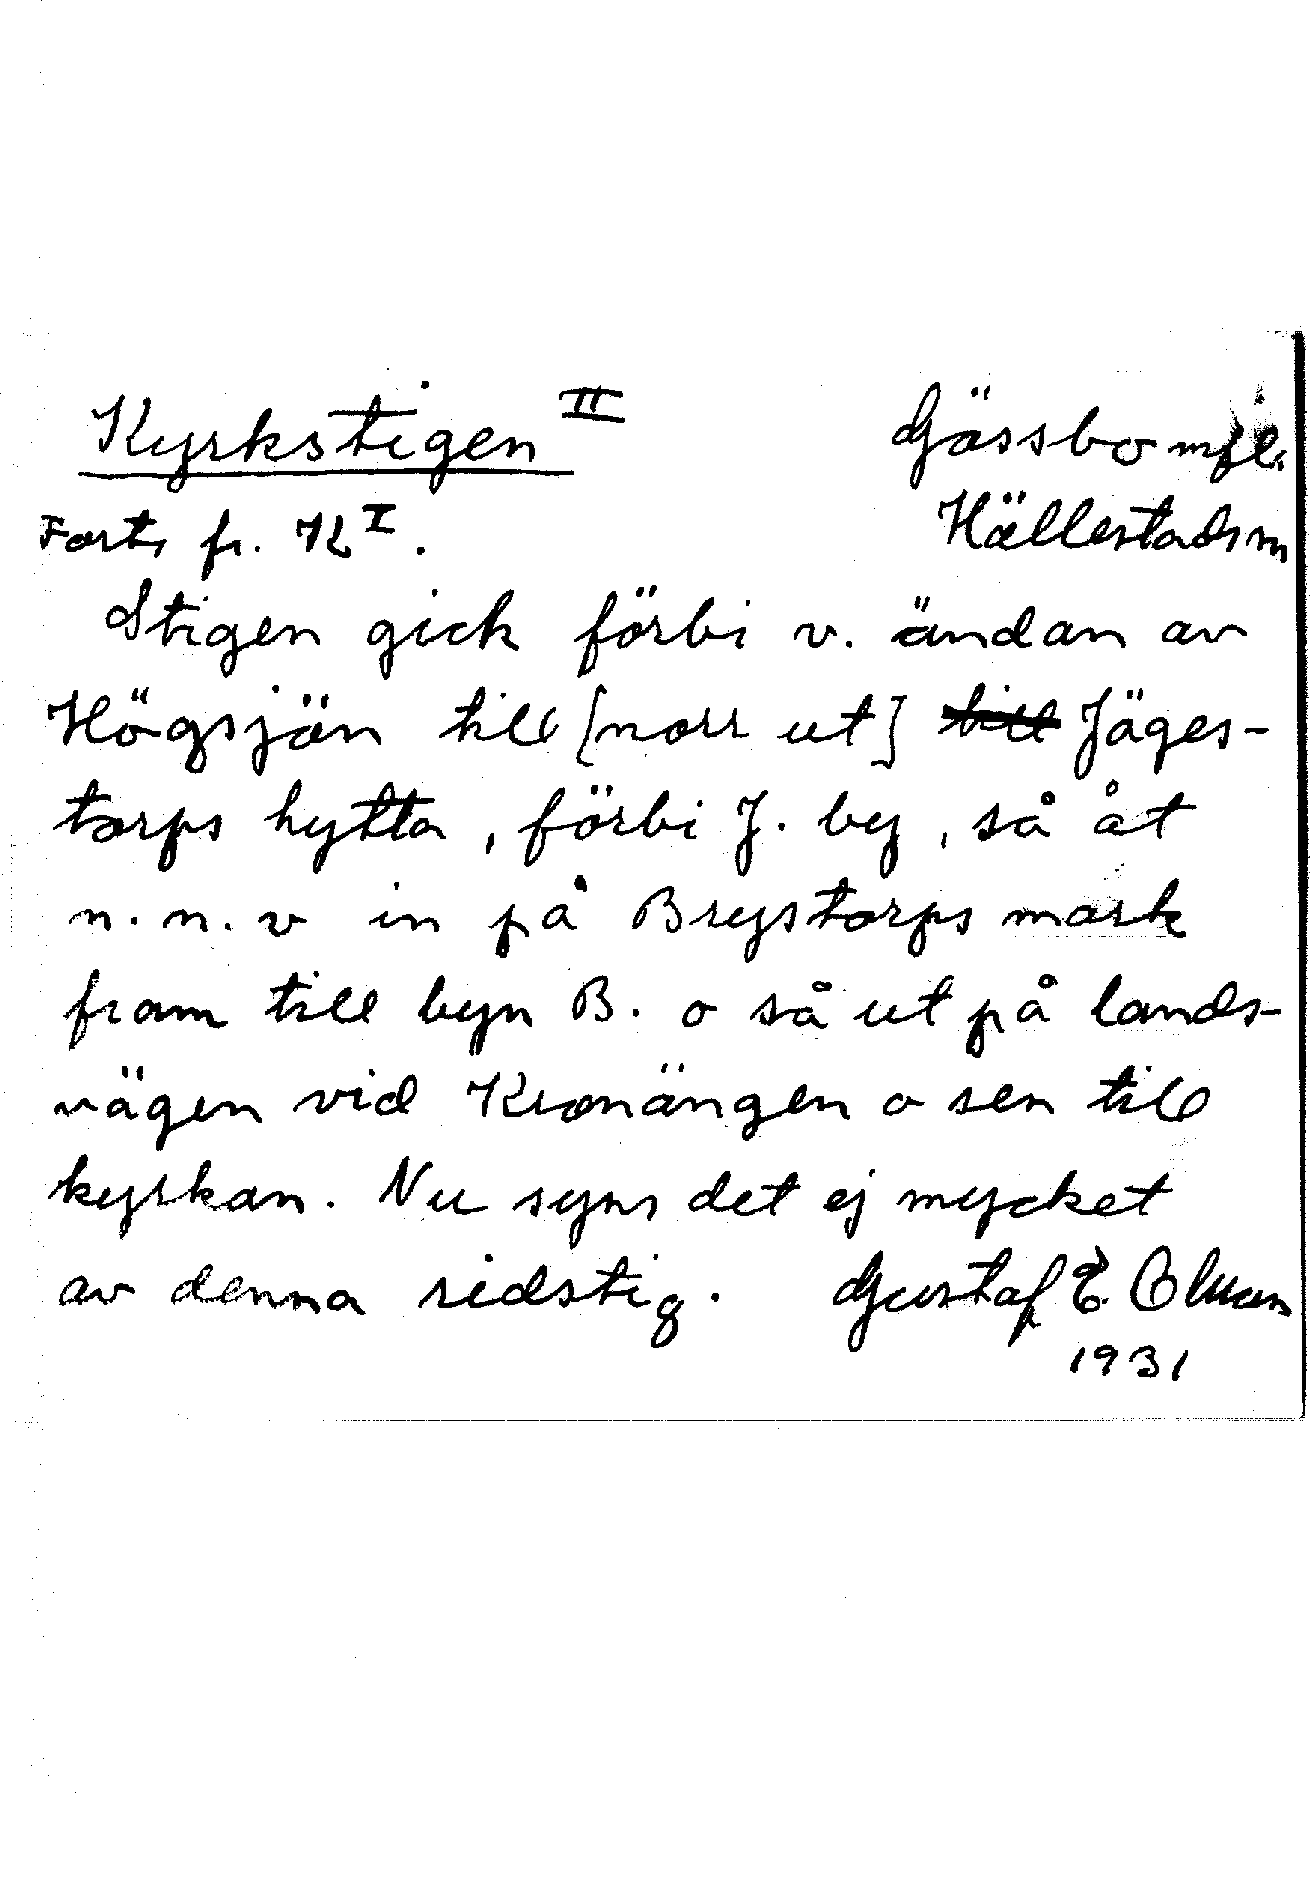 Kyrkstigen II
Gässbo mfl.
Forts fr. K I.
Hällestads sn
Stigen gick förbi v. ändan av
Högsjön till [norr ut] till Jäges-
torps hytta, förbi J. by, så åt
n.n.v in på Brystorps mark
fram till byn B. o så ut på lands-
vägen vid Kronängen o sen till
kyrkan. Nu syns det ej mycket
av denna ridstig. Gustaf E.
1931